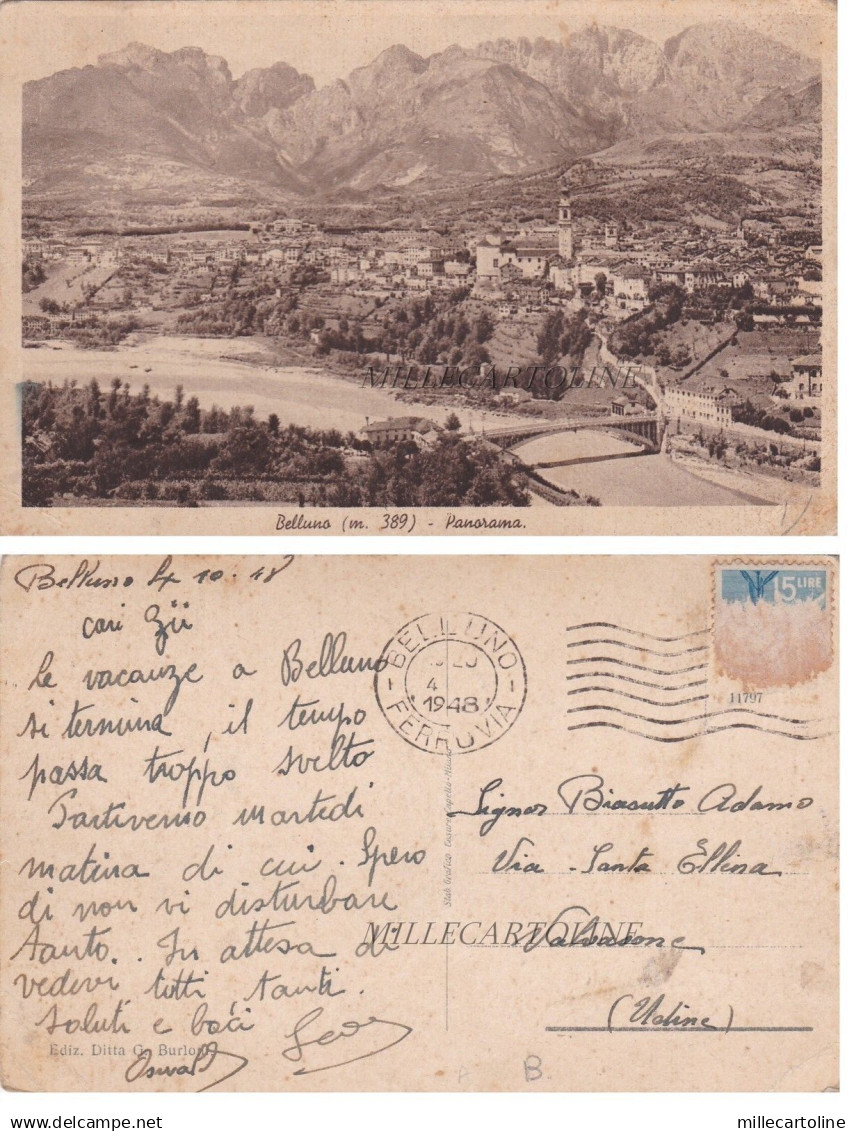 MILLECARTOLINE
Belluno (m. 389) - Panorama.
Belluno 4 10. 48
cari Zii
Le vacanze a Belluno
si termina, il tempo
passa troppo svelto
Partiremo martedì
matina di cui. Spero
di non vi disturbare
tanto.. In attesa di
vedervi tutti tanti
saluti e baci
Ediz. Ditta G. Burloni
BELLUNO
4
1948
FERROVIA
15 LIRE
11797
Signor Biasutto Adamo
Via Santa Ellina
MILLECARTOLINE
Valvasone
(Udine)
B
delcampe.net
millecartoline